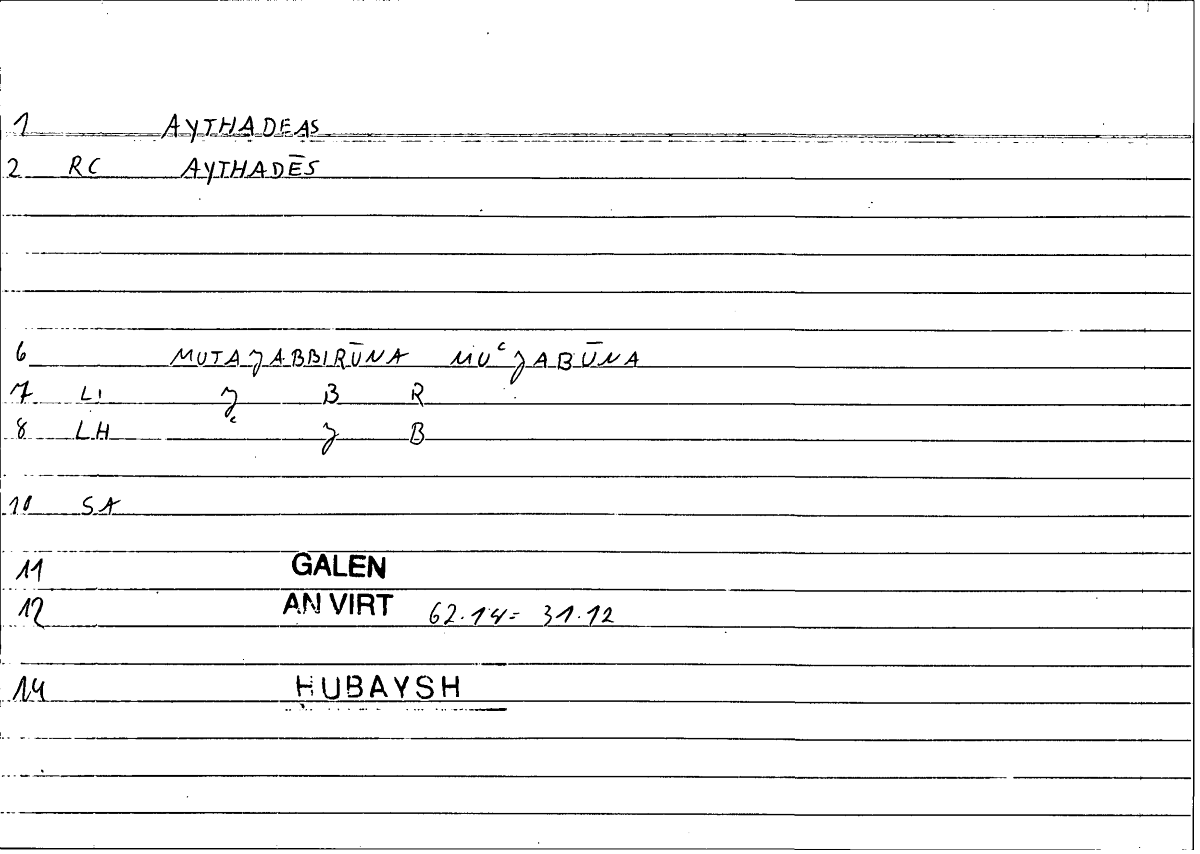 1 AYTHADEAS
2 RC AYTHADĒS
6 MUTAʒABBIRŪNA MUʿʒABŪNA
7 LI ʒ B R
8 LH ʿ ʒ B
10 SA
11 GALEN
12 AN VIRT 62.14= 31.12
14 HUBAYSH